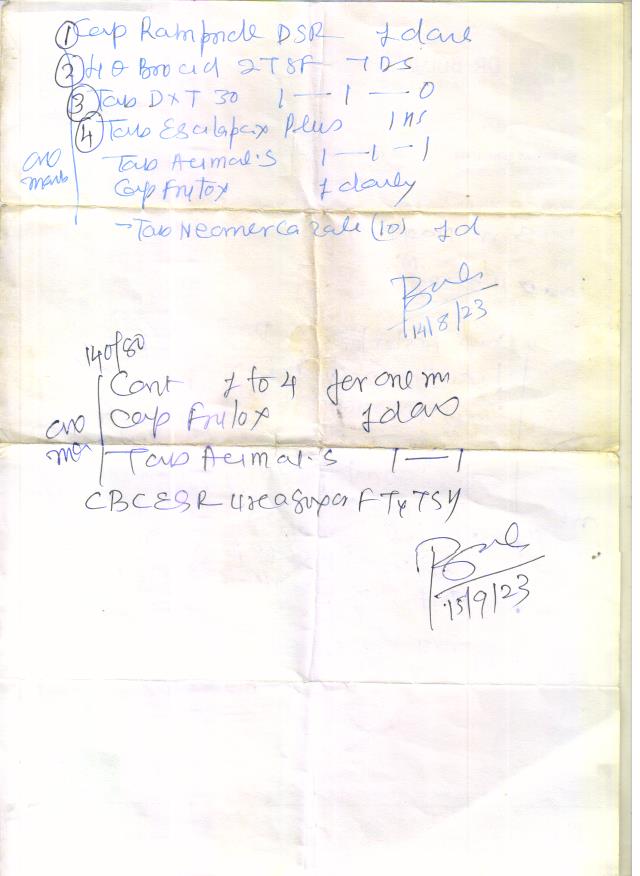 ① Cap Rampride DSR 1 dail
② Liq Brocid 2TSF TDS
③ Tab DXT 30 1 — 1 — 0
④ Tab Escalapax Plus 1 HS
one
month
Tab Acimal.S 1 — 1 — 1
Cap Frutox 1 daily
Tab Neomercazole (10) 1 d
14/8/23
140/80
Cont 1 to 4 for one m
one
Cap Frutox 1 daio
Tab Acimal.S 1 — 1
CBC ESR urea sugar FT4 TSH
15/9/23